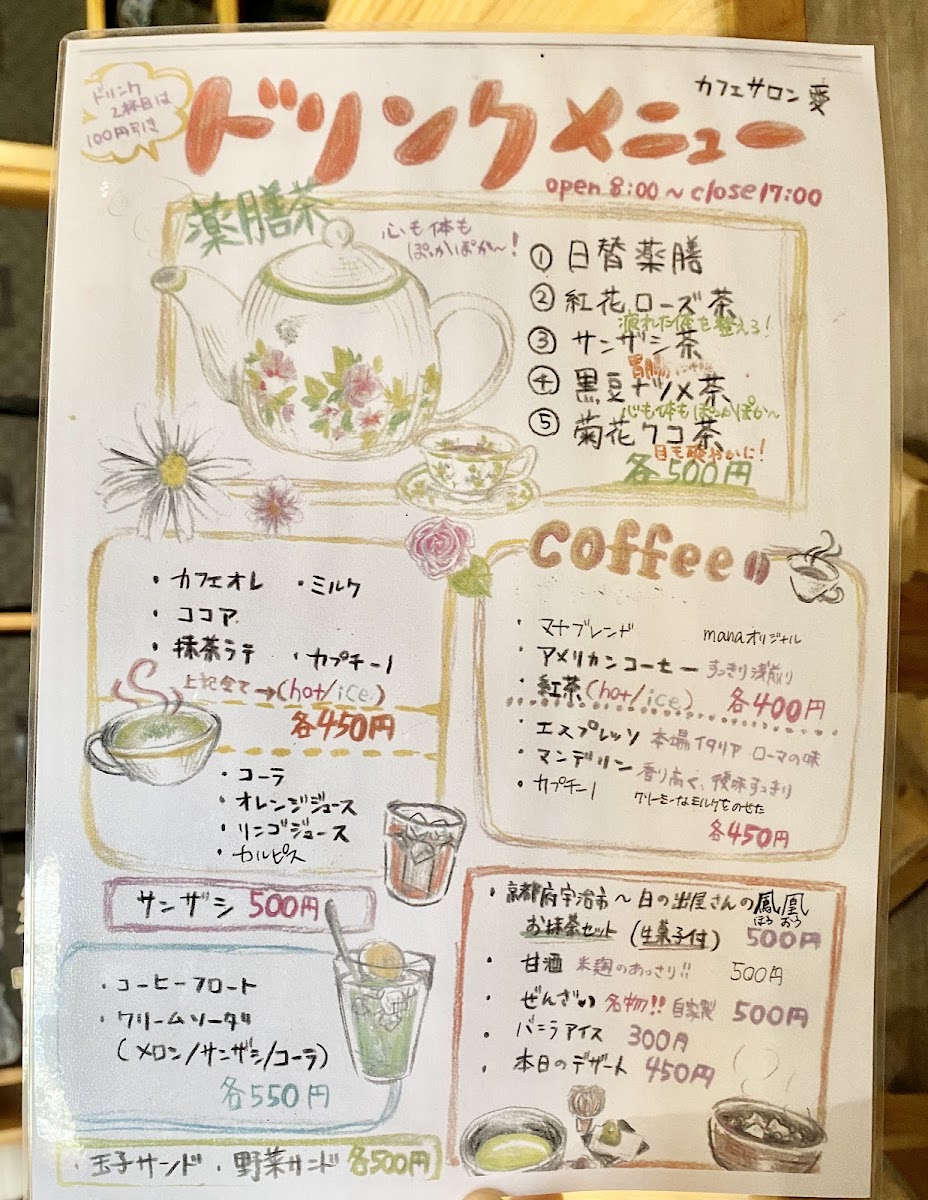 ドリンク
2杯目は
100円引き
ドリンクメニュー
カフェサロン 愛
open 8:00〜close 17:00
薬膳茶
心も体も
ぽかぽか〜!
① 日替薬膳
② 紅花ローズ茶
疲れた体を整える!
③ サンザシ茶
胃腸
④ 黒豆ナツメ茶
心も体もぽっかぽか〜
⑤ 菊花クコ茶
目も爽やかに!
各500円
・カフェオレ ・ミルク
・ココア
・抹茶ラテ ・カプチーノ
上記全て→(hot/ice)
各450円
・コーラ
・オレンジジュース
・リンゴジュース
・カルピス
サンザシ 500円
・コーヒーフロート
・クリームソーダ
(メロン/サンザシ/コーラ)
各550円
・玉子サンド ・野菜サンド 各500円
coffee
・マナブレンド manaオリジナル
・アメリカンコーヒー すっきり浅煎り
・紅茶(hot/ice) 各400円
・エスプレッソ 本場イタリア ローマの味
・マンデリン 香り高く、後味すっきり
・カプチーノ クリーミーなミルクをのせた
各450円
・京都府宇治市〜日の出屋さんの鳳凰
ほう おう
お抹茶セット (生菓子付) 500円
・甘酒 米麹のあっさり!! 500円
・ぜんざい 名物!! 自家製 500円
・バニラアイス 300円
・本日のデザート 450円